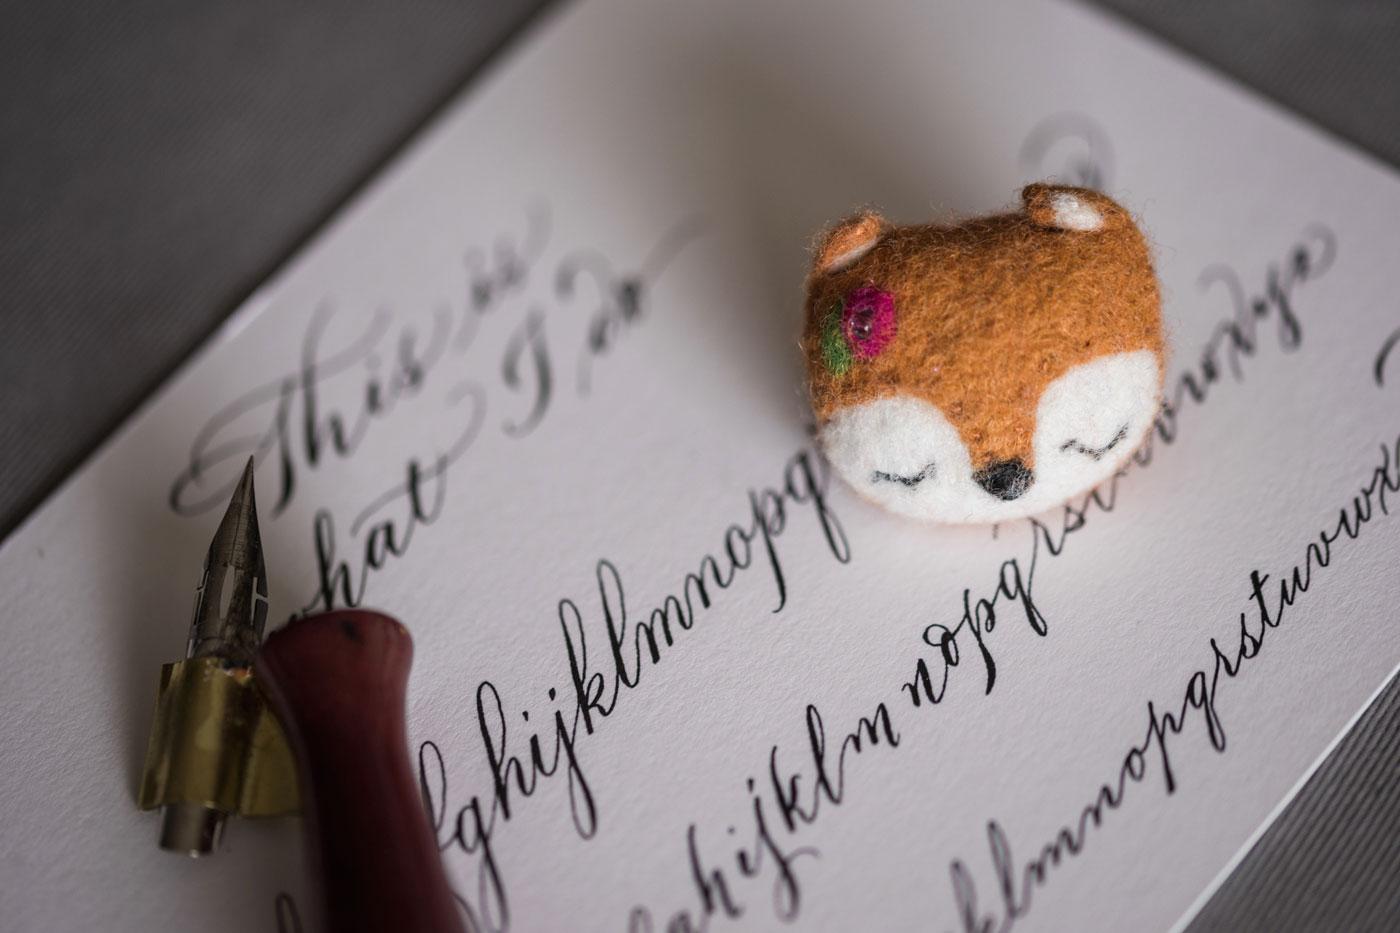 This is
what I do
fghijklmnopq
ghijklmnopqrs
klmnopqrstuvwx